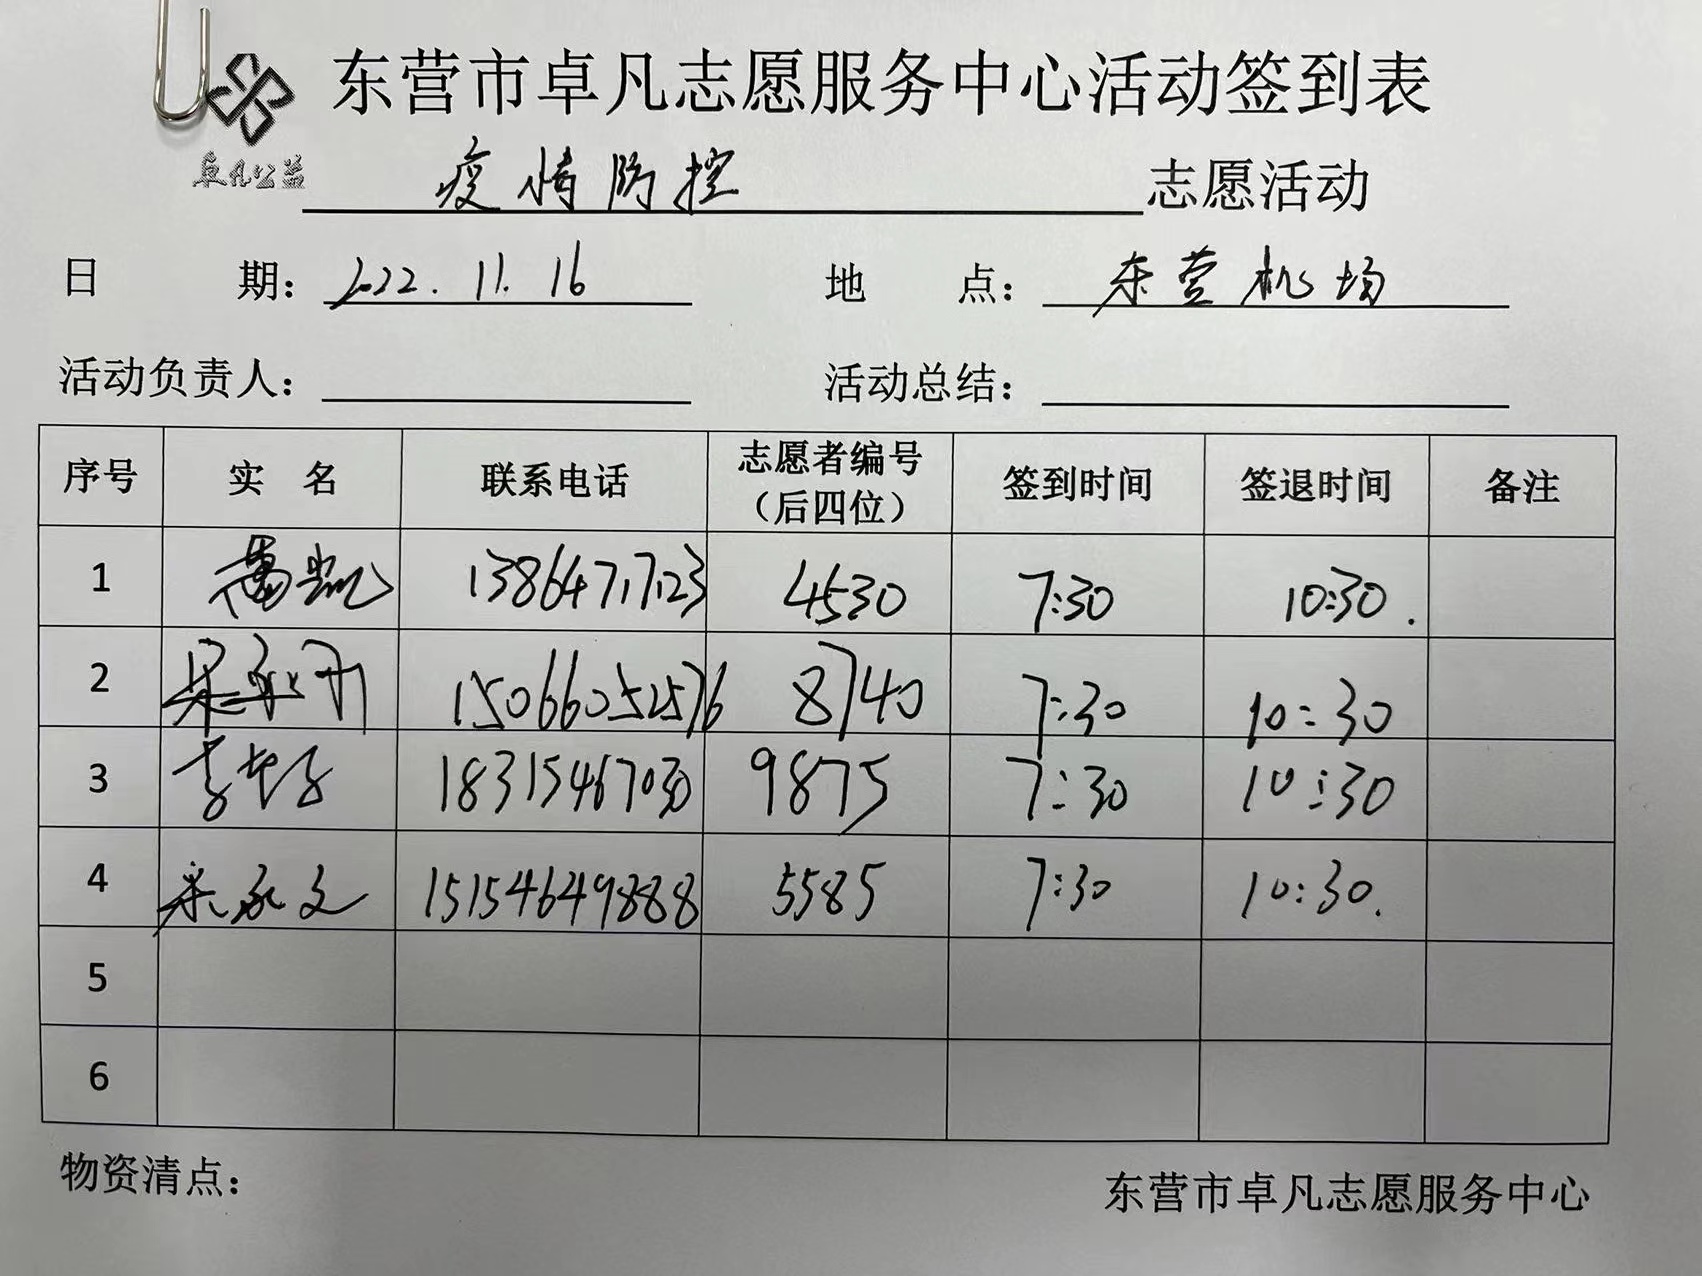 东营市卓凡志愿服务中心活动签到表
卓凡公益
疫情防控 志愿活动
日 期: 2022.11.16 地 点: 东营机场
活动负责人: 活动总结:
序号 实 名 联系电话 志愿者编号（后四位） 签到时间 签退时间 备注
1 13864717123 4530 7:30 10:30.
2 15066052576 8740 7:30 10:30
3 18315467030 9875 7:30 10:30
4 15154649888 5585 7:30 10:30.
5
6
物资清点:
东营市卓凡志愿服务中心